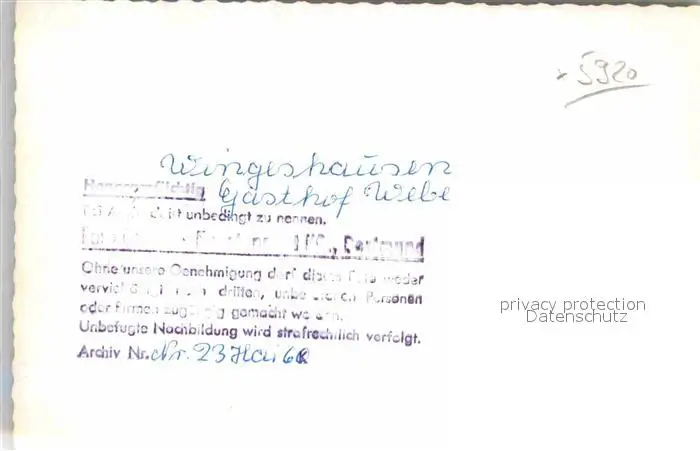 5920
Wingeshausen
Honorarpflichtig Gasthof Webe
ist unbedingt zu nennen.
KG., Dortmund
Ohne unsere Genehmigung darf dieses Foto weder
dritten, Personen
oder Firmen zugängig gemacht werden.
Unbefugte Nachbildung wird strafrechtlich verfolgt.
Archiv Nr. Nr. 23
privacy protection
Datenschutz